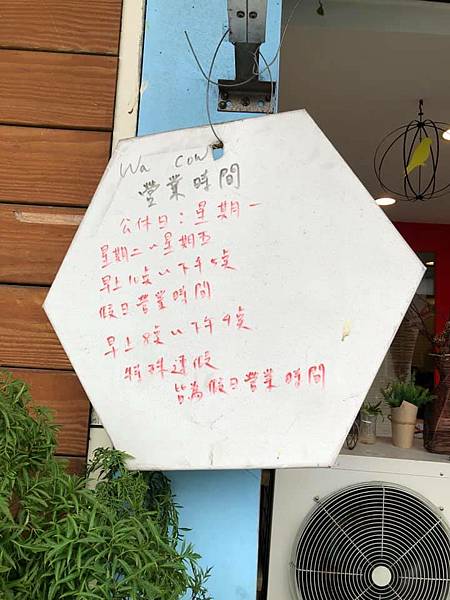 Wa Cow
營業時間
公休日：星期一
星期二~星期五
早上10點~下午5點
假日營業時間
早上8點~下午9點
特殊連假
皆為假日營業時間